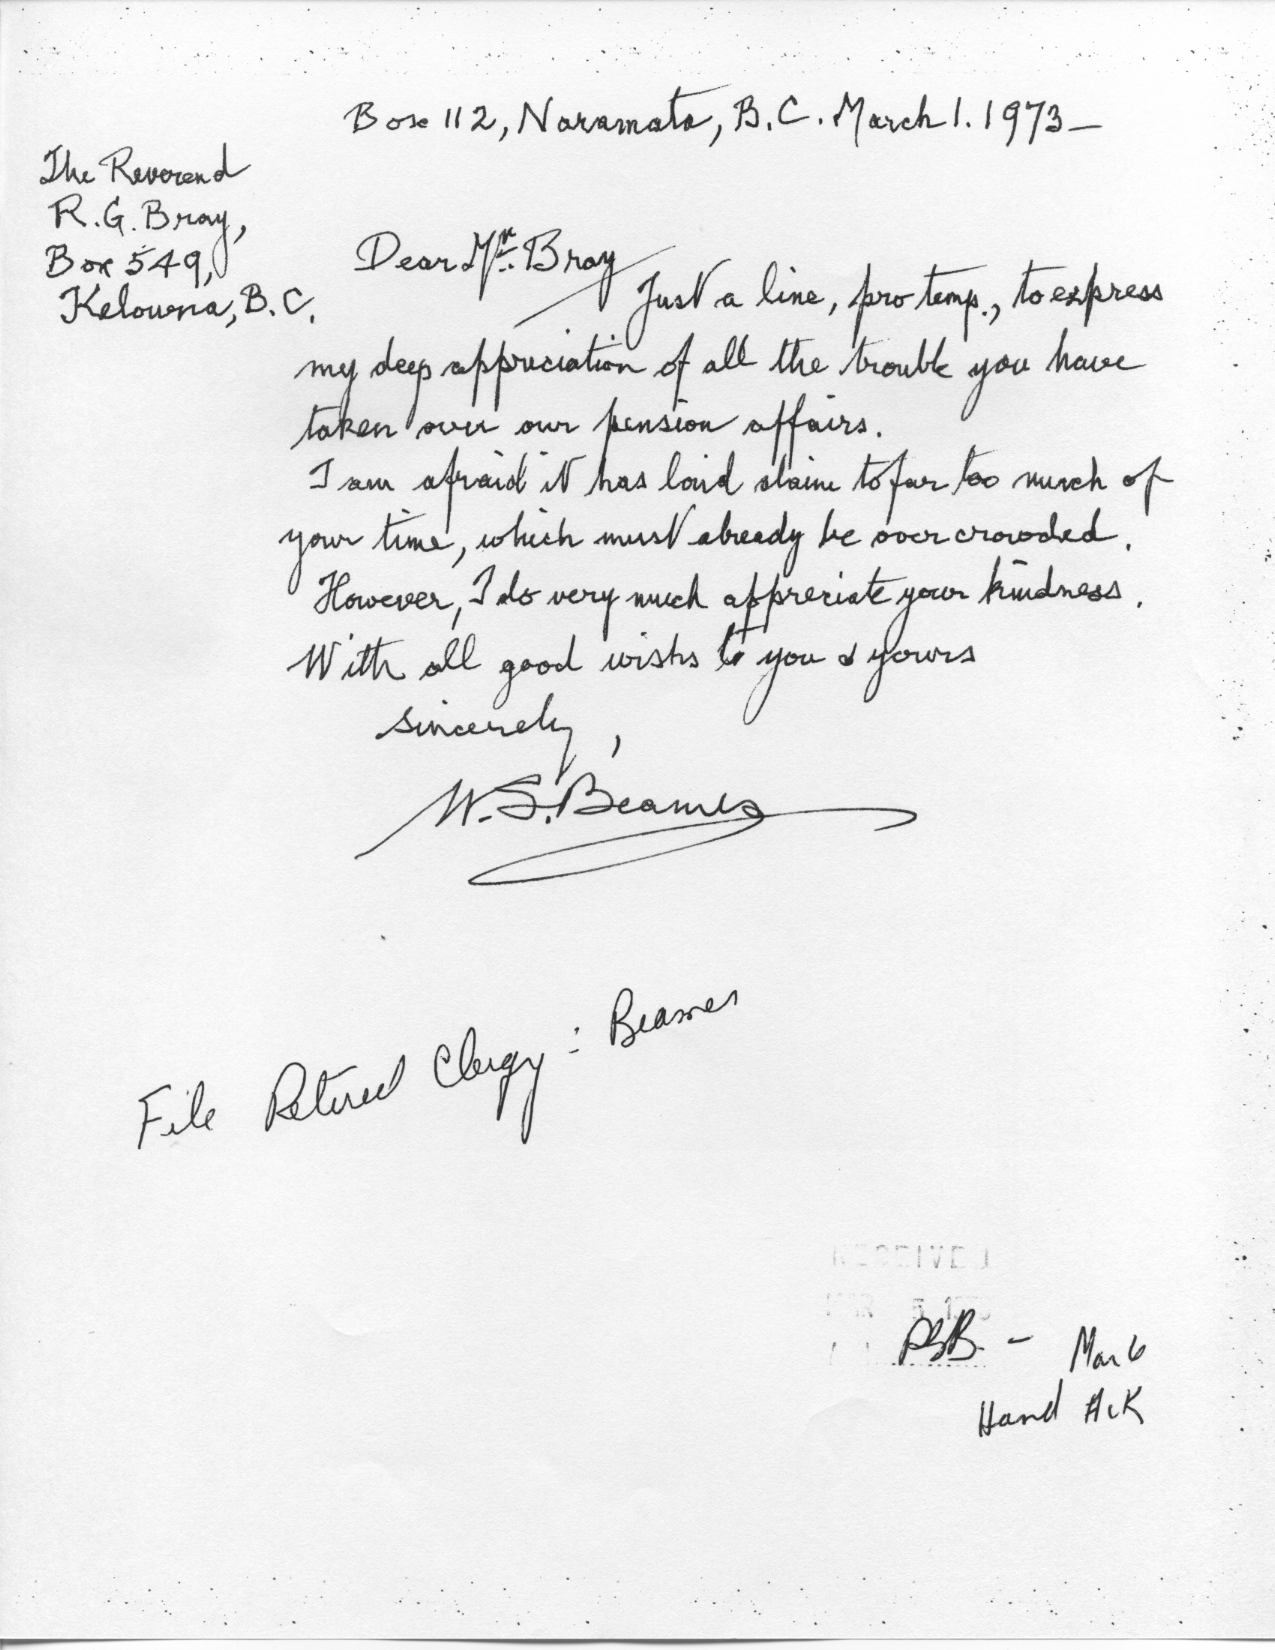 Box 112, Naramata, B.C. March 1. 1973 –
The Reverend
R. G. Bray,
Box 549,
Kelowna, B.C.
Dear Mr. Bray
Just a line, pro temp., to express
my deep appreciation of all the trouble you have
taken over our pension affairs.
I am afraid it has laid claim to far too much of
your time, which must already be overcrowded.
However, I do very much appreciate your kindness.
With all good wishes to you & yours
sincerely,
W. S. Beames
File Retired Clergy: Beames
– Mar 6
Hand Ack